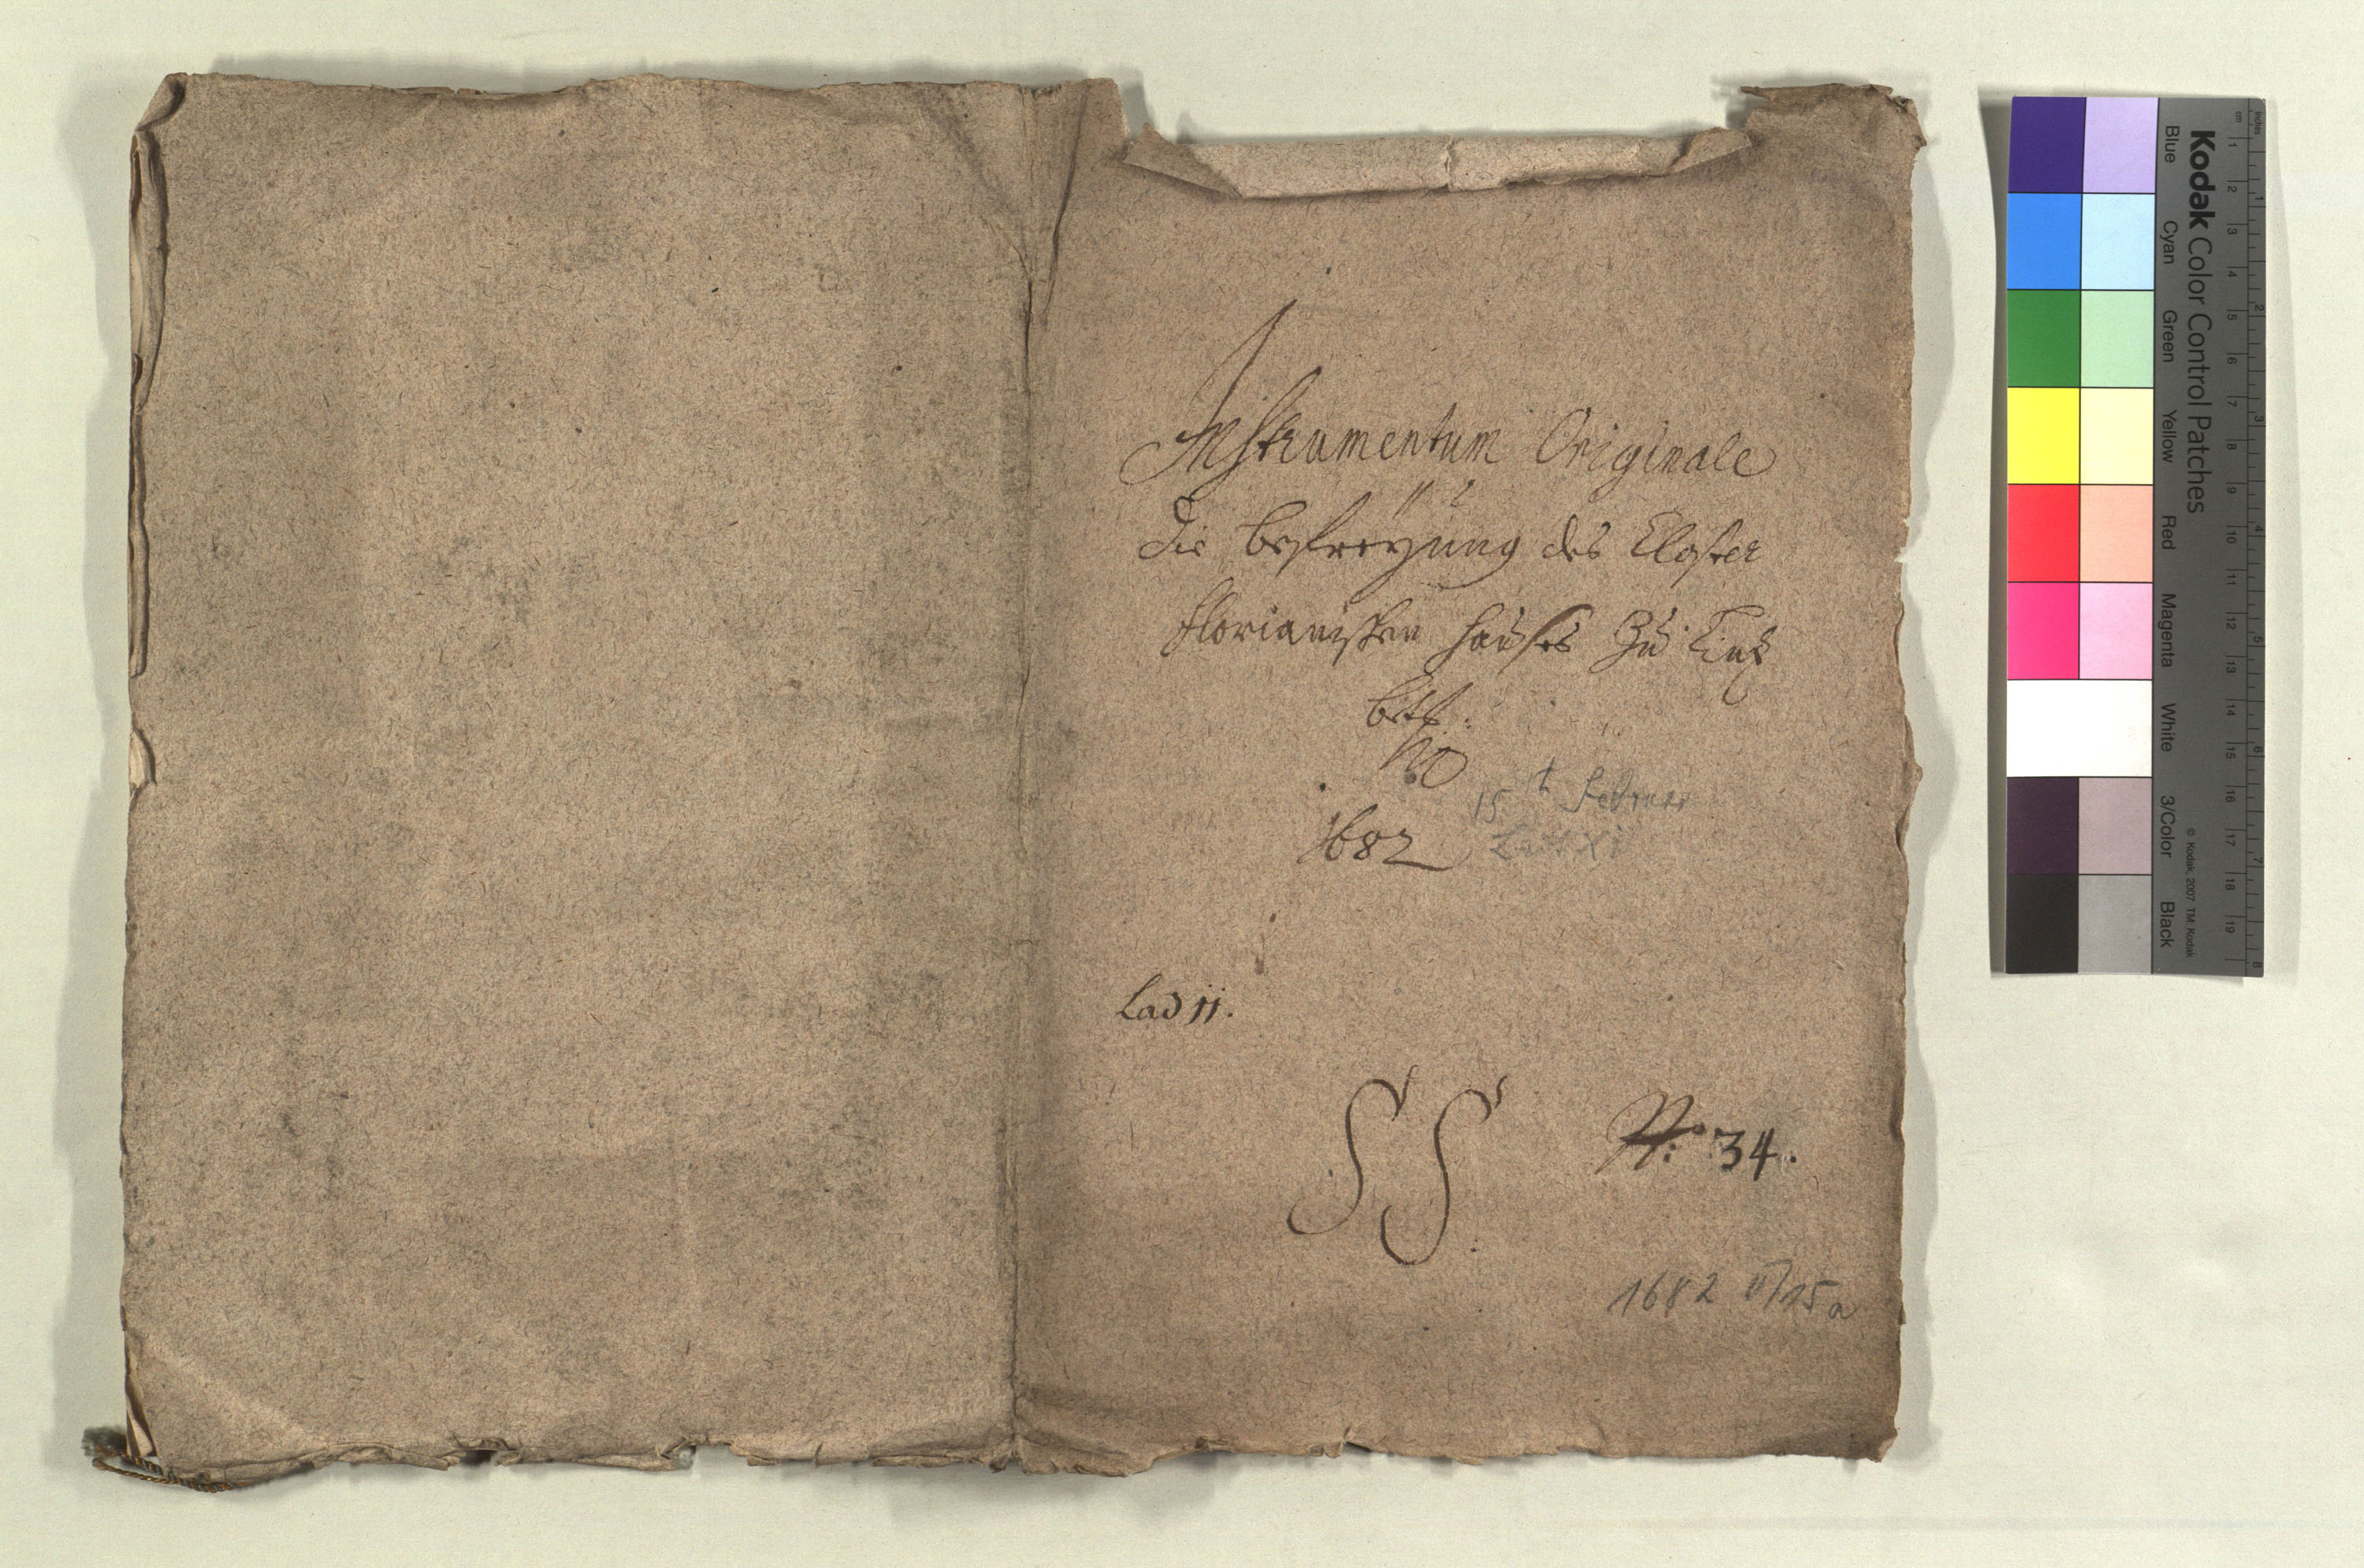 Instrumentum Originale
Die befreyung des Closter
Florianischen hauses Zu Lintz
betr:
No
15t Februar
1682
Lad XI
Lad 11.
SS
N: 34.
1682 II/15a
Kodak Color Control Patches
Blue Cyan Green Yellow Red Magenta White 3/Color Black
© Kodak, 2007 TM: Kodak
inches 1 2 3 4 5 6 7 8
cm 1 2 3 4 5 6 7 8 9 10 11 12 13 14 15 16 17 18 19